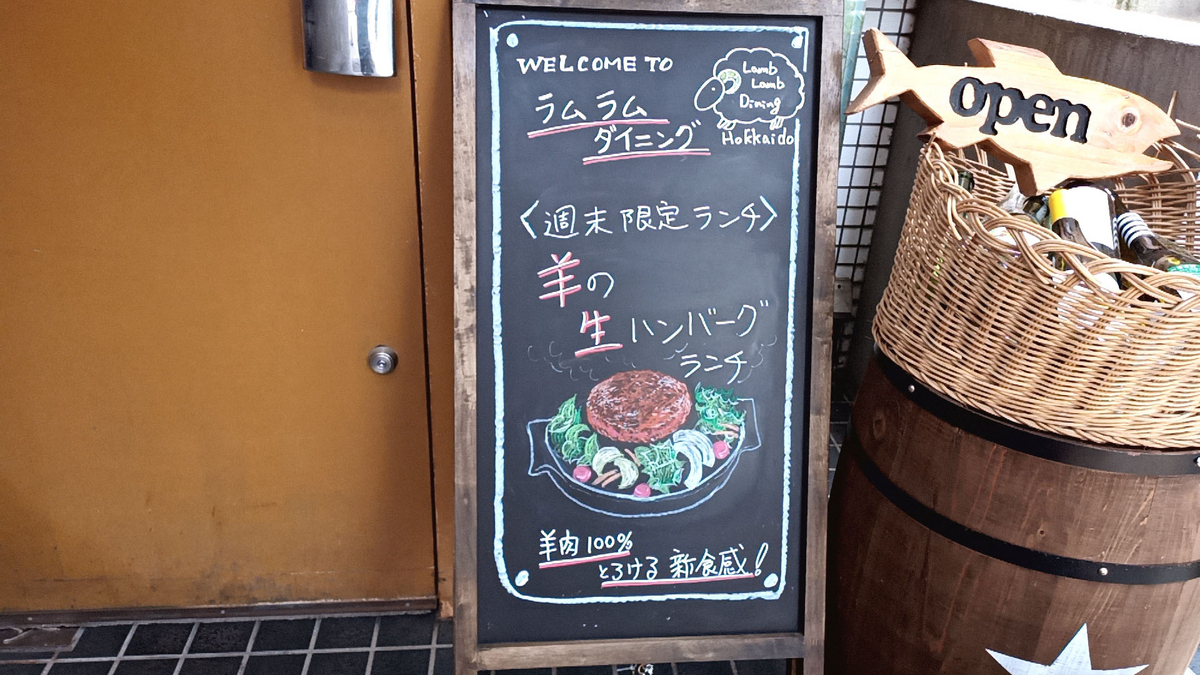 WELCOME TO
ラムラム
ダイニング
Lamb
Lamb
Dining
Hokkaido
〈週末限定ランチ〉
羊の
生ハンバーグ
ランチ
羊肉100%
とろける新食感!
open